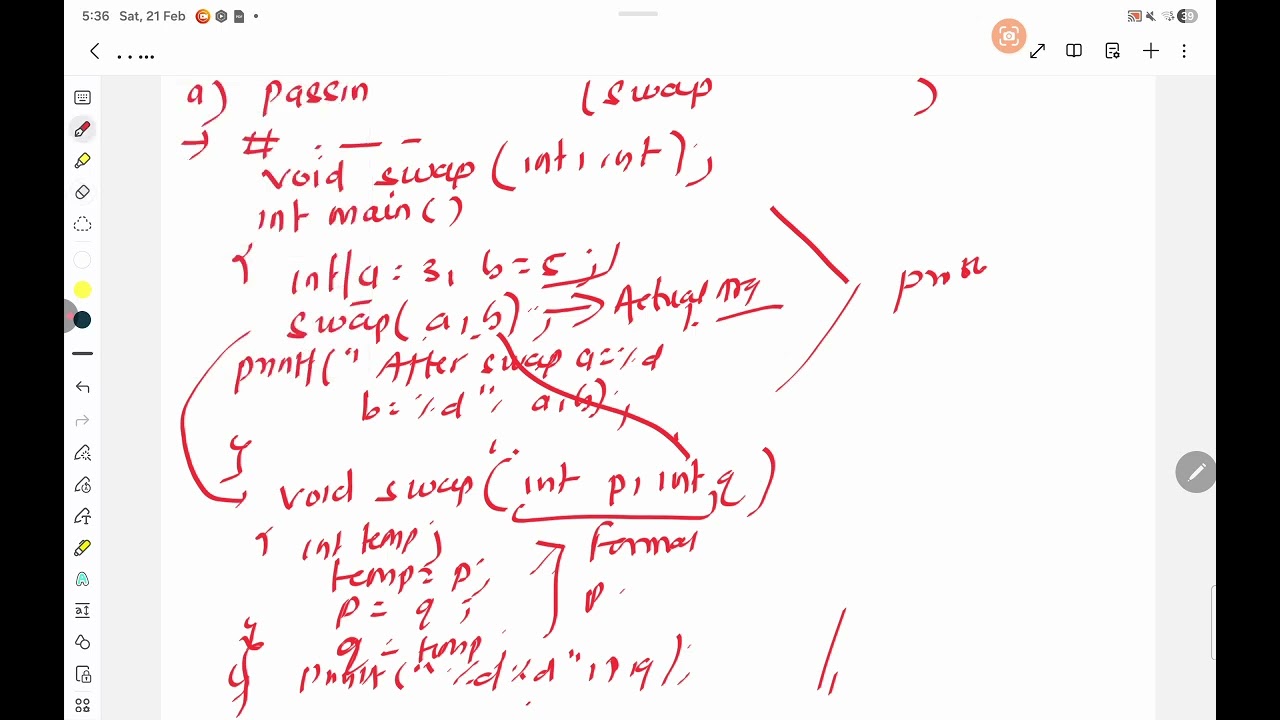 5:36 Sat, 21 Feb
39
a) passin (swap )
→ #
void swap (int, int);
int main()
{ int a = 3, b = 5;
swap(a, b); → Actual arg
printf(" After swap a=%d
b=%d", a,b);
}
void swap (int p, int q)
{ int temp;
formal
temp = p;
p
p = q;
q = temp
printf(" %d%d", p, q);
}